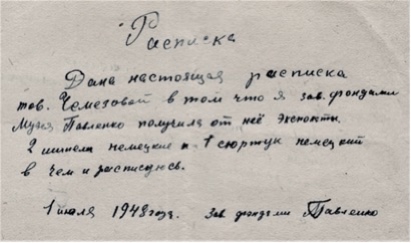 Расписка
Дана настоящая расписка
тов. Чемезовой в том что я зав. фондами
Музея Павленко получила от неё экспонты
2 шинели немецкие и 1 сюртук немецкий
в чем и расписуюсь.
1 июля 1948 года. Зав фондами Павленко